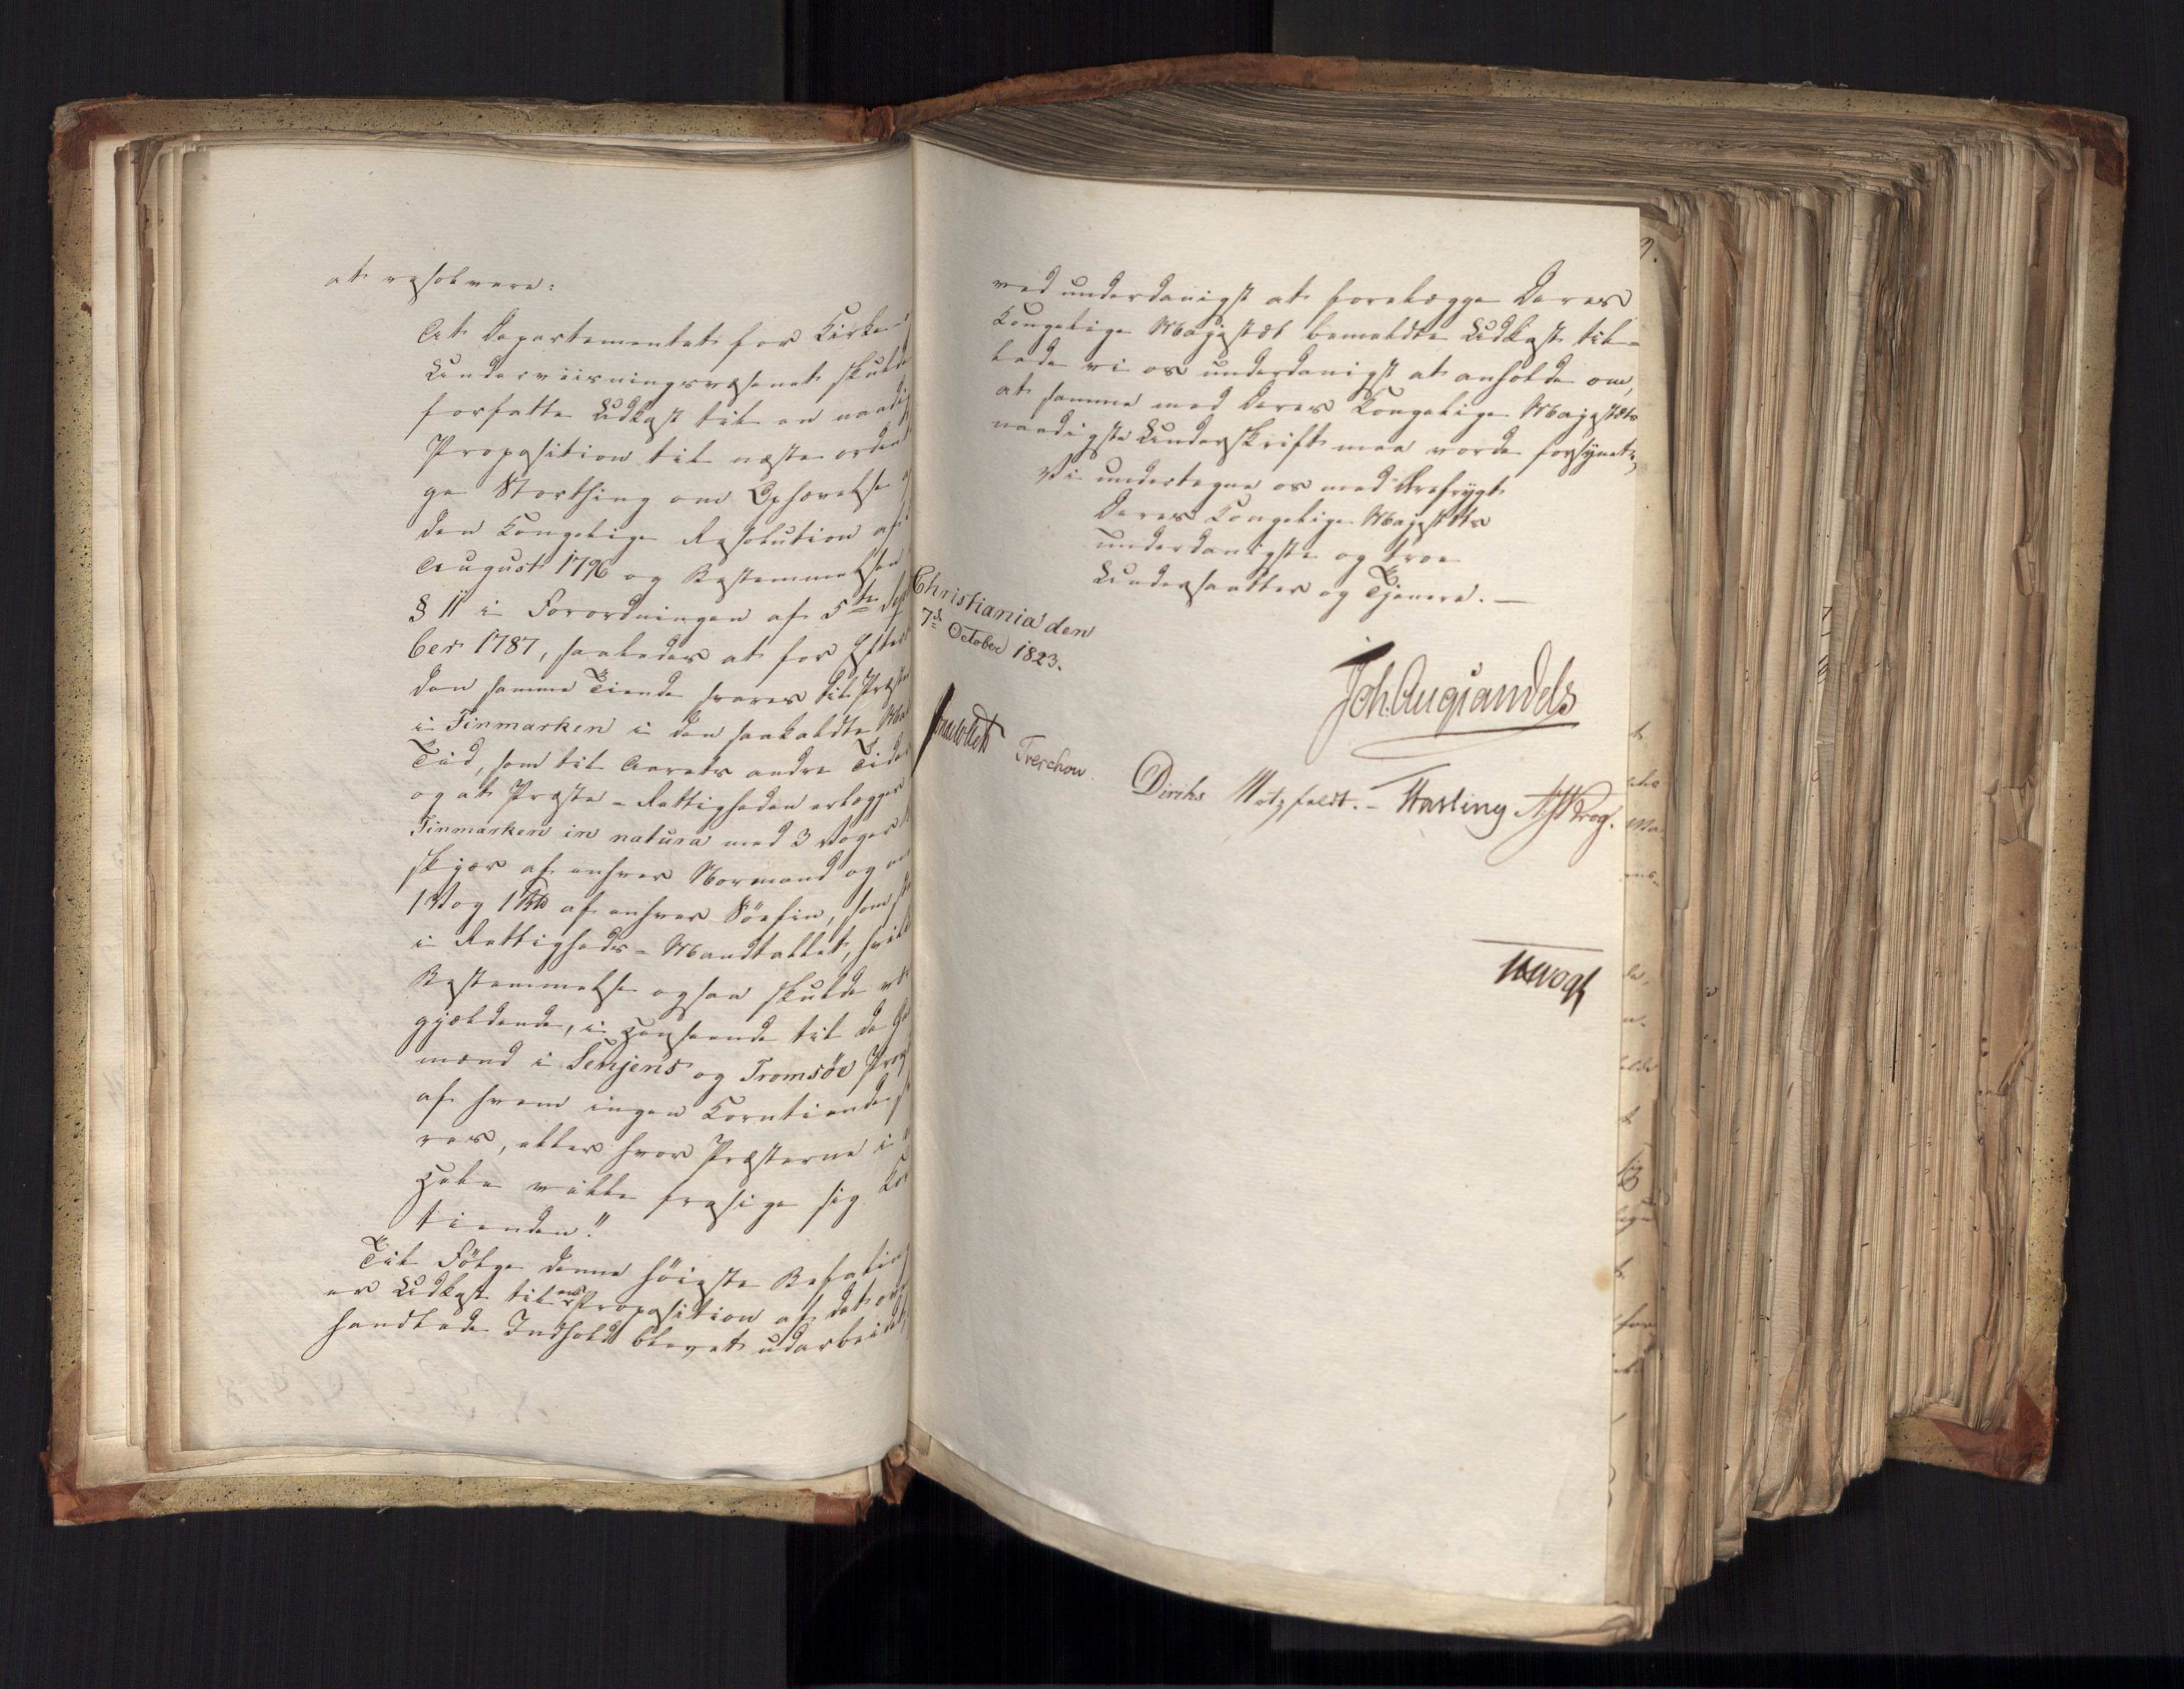 at resolvere:
At Departementet for Kirke-
Underviisningsvæsenet skulde
forfatte Udkast til en naadig
Proposition til næste orden
ge Storthing om Ophævelse
den Kongelige Resolution af
August 1796 og Bestemmelsen
§ 11 i Forordningen af 5te Sep
ber 1787, saaledes at for Efter
den samme Tiende svares til Præst
i Finmarken i den saakaldte Mak
Tid, som til Aarets andre Tider
og at Præste-Rettigheden erlægges
Finmarken in natura med 3 Voger
skjær af enhver Normand og
1 Vog 1 af enhver Söefin, som
i Rettigheds-Mandtallet, hvil
Bestemmelse ogsaa skulde
gjældende, i Henseende til de
mænd i Senjens og Tromsöe
af hvem ingen Korntiende
res, eller hvor Præsterne i
Hele ville frasige sig Kor
tienden."
Til Fölge denne höieste Befaling
er Udkast til en Proposition af det om
handlede Indhold blevet udarbeidet,
ved underdanigst at forelægge Deres
Kongelige Majestæt bemeldte Udkast til-
lade vi os underdanigst at anholde om,
at samme med Deres Kongelige Majestæts
naadigste Underskrift maa vorde forsynet,
Vi undertegne os med Ærefrygt
Deres Kongelige Majestæts
underdanigste og troe
Undersaatter og Tjenere. —
Christiania den
7de October 1823.
Joh. Aug. Sandels
Treschow.
Diriks Motzfeldt. - Fasting Krog.
Vogt